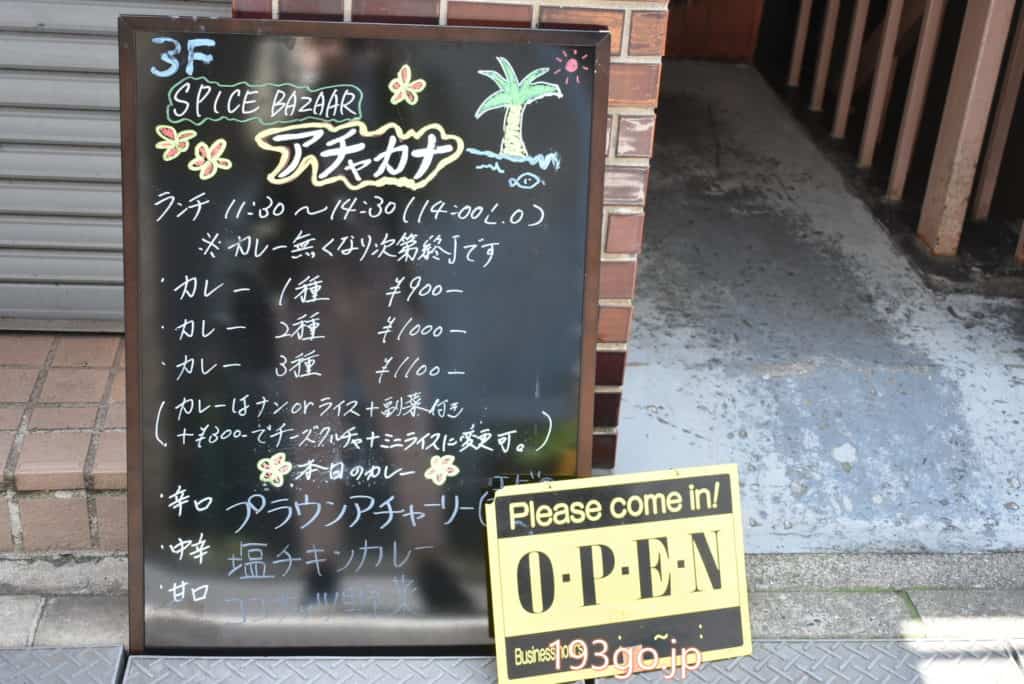 3F
SPICE BAZAAR
アチャカナ
ランチ 11:30 ～ 14:30 (14:00 L.O)
※カレー無くなり次第終了です
・カレー 1種 ¥900-
・カレー 2種 ¥1000-
・カレー 3種 ¥1100-
(カレーはナンorライス+副菜付き
+¥300-でチーズクルチャナミニライスに変更可。)
本日のカレー
・辛口 プラウンアチャーリー(
・中辛 塩チキンカレー
・甘口 ココナッツ野菜
Please come in!
O·P·E·N
Business hours
193go.jp